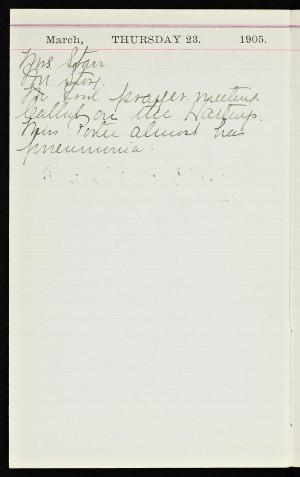 March, THURSDAY 23. 1905.
Mrs Starr
Mr Story.
prayer meeting
Called on the
Miss Porter almost has
pneumonia.